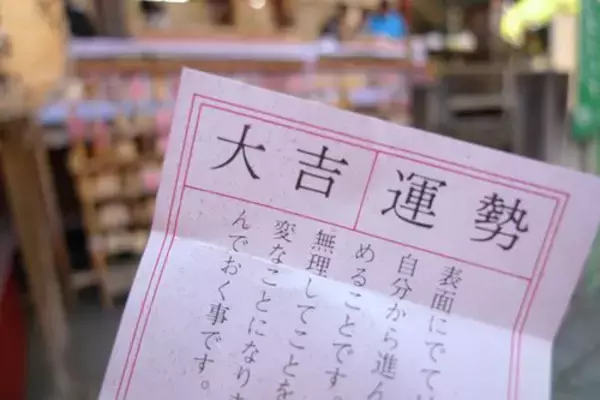 大吉
運勢
表面にでて
自分から進ん
めることです。
無理してことを
変なことになり
んでおく事です。